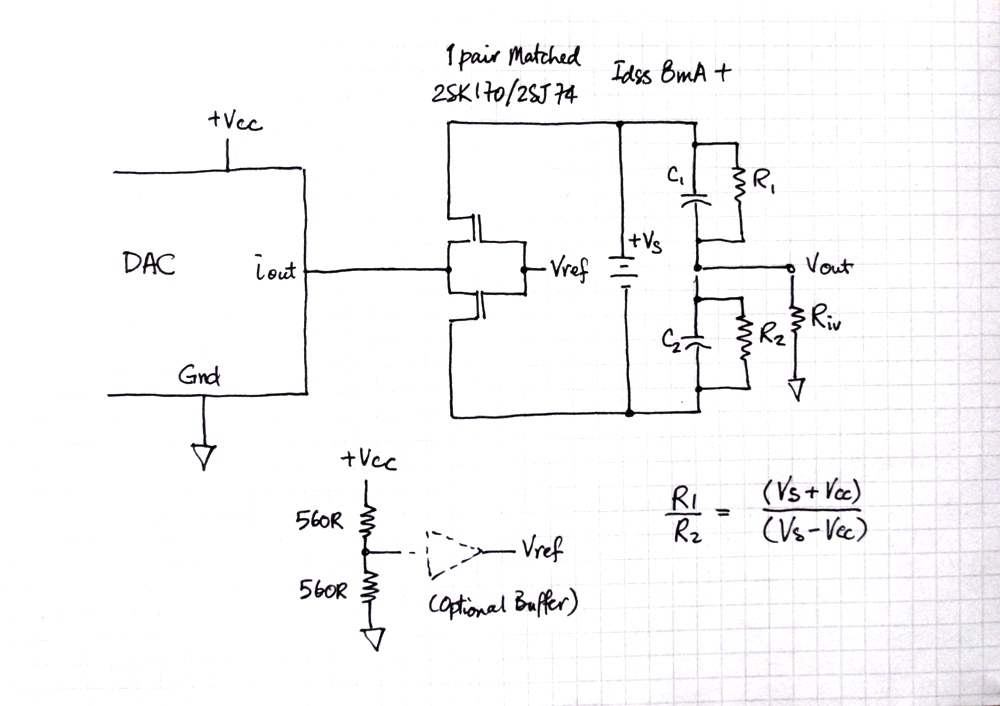 1 pair Matched
2SK170/2SJ74
Idss 8mA +
+Vcc
DAC
iout
Gnd
Vref
+Vs
C1
R1
Vout
C2
R2
Riv
+Vcc
560R
560R
Vref
(Optional Buffer)
R1/R2 = (Vs+Vcc)/(Vs-Vcc)